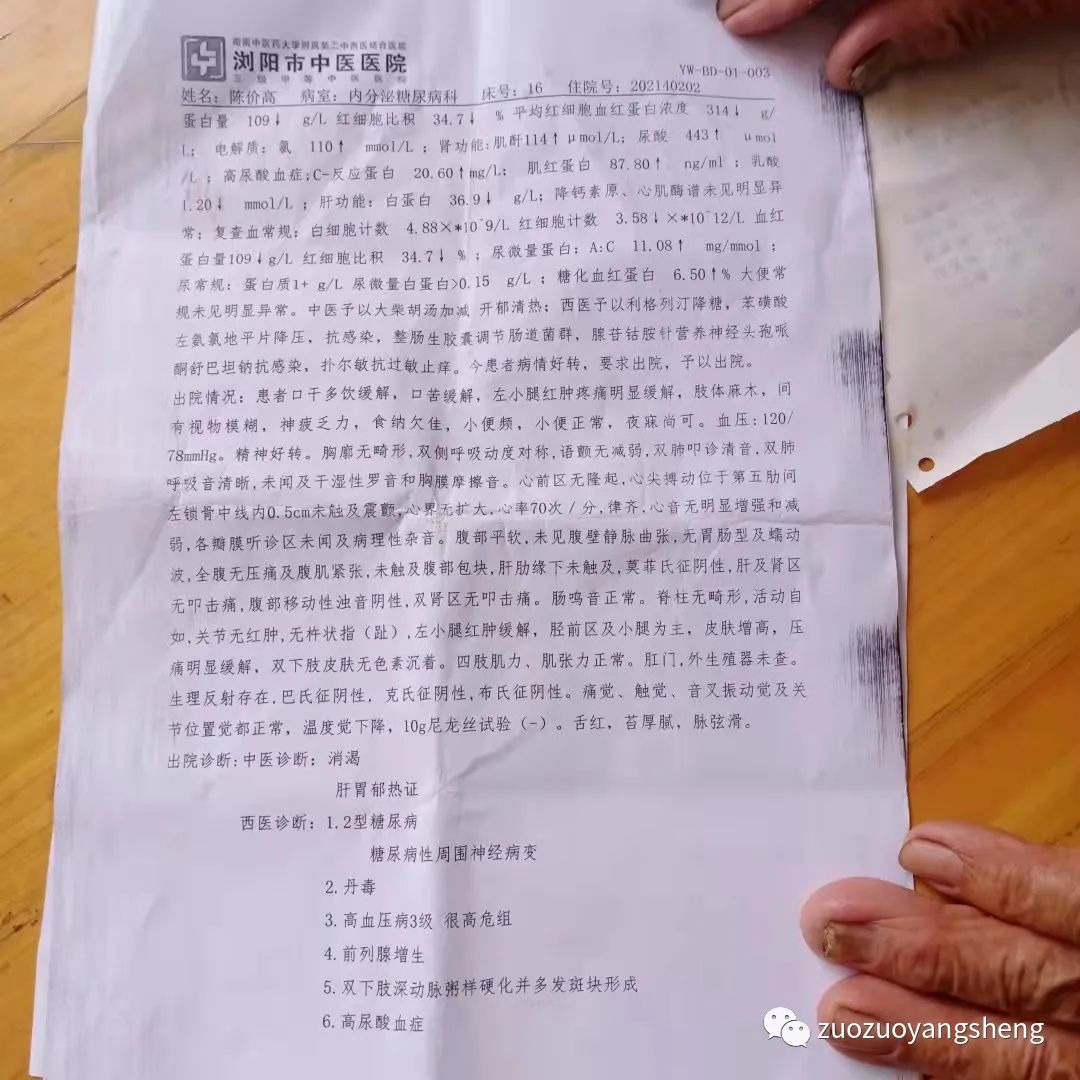 湖南中医药大学附属第二中西医结合医院
浏阳市中医医院
三级甲等中医医院
YW-BD-01-003
姓名：陈价高 病室：内分泌糖尿病科 床号：16 住院号：202140202
蛋白量 109↓ g/L 红细胞比积 34.7↓ % 平均红细胞血红蛋白浓度 314↓ g/
L； 电解质：氯 110↑ mmol/L；肾功能:肌酐114↑μmol/L；尿酸 443↑ μmol
/L；高尿酸血症;C-反应蛋白 20.60↑mg/L； 肌红蛋白 87.80↑ ng/ml；乳酸
1.20↓ mmol/L；肝功能：白蛋白 36.9↓ g/L；降钙素原、心肌酶谱未见明显异
常；复查血常规：白细胞计数 4.88××10^9/L 红细胞计数 3.58↓×*10^12/L 血红
蛋白量109↓g/L 红细胞比积 34.7↓ %；尿微量蛋白：A:C 11.08↑ mg/mmol；
尿常规：蛋白质1+ g/L 尿微量白蛋白>0.15 g/L；糖化血红蛋白 6.50↑% 大便常
规未见明显异常。中医予以大柴胡汤加减 开郁清热；西医予以利格列汀降糖，苯磺酸
左氨氯地平片降压，抗感染，整肠生胶囊调节肠道菌群，腺苷钴胺针营养神经头孢哌
酮舒巴坦钠抗感染，扑尔敏抗过敏止痒。今患者病情好转，要求出院，予以出院。
出院情况：患者口干多饮缓解，口苦缓解，左小腿红肿疼痛明显缓解，肢体麻木，间
有视物模糊，神疲乏力，食纳欠佳，小便频，小便正常，夜寐尚可。血压:120/
78mmHg。精神好转。胸廓无畸形,双侧呼吸动度对称,语颤无减弱,双肺叩诊清音,双肺
呼吸音清晰,未闻及干湿性罗音和胸膜摩擦音。心前区无隆起,心尖搏动位于第五肋间
左锁骨中线内0.5cm未触及震颤,心界无扩大,心率70次／分,律齐,心音无明显增强和减
弱,各瓣膜听诊区未闻及病理性杂音。腹部平软,未见腹壁静脉曲张,无胃肠型及蠕动
波,全腹无压痛及腹肌紧张,未触及腹部包块,肝肋缘下未触及,莫菲氏征阴性,肝及肾区
无叩击痛,腹部移动性浊音阴性,双肾区无叩击痛。肠鸣音正常。脊柱无畸形,活动自
如,关节无红肿,无杵状指（趾）,左小腿红肿缓解，胫前区及小腿为主，皮肤增高，压
痛明显缓解，双下肢皮肤无色素沉着。四肢肌力、肌张力正常。肛门,外生殖器未查。
生理反射存在,巴氏征阴性，克氏征阴性,布氏征阴性。痛觉、触觉、音叉振动觉及关
节位置觉都正常，温度觉下降，10g尼龙丝试验（-）。舌红，苔厚腻，脉弦滑。
出院诊断:中医诊断：消渴
肝胆郁热证
西医诊断：1.2型糖尿病
糖尿病性周围神经病变
2.丹毒
3.高血压病3级 很高危组
4.前列腺增生
5.双下肢深动脉粥样硬化并多发斑块形成
6.高尿酸血症
zuozuoyangsheng